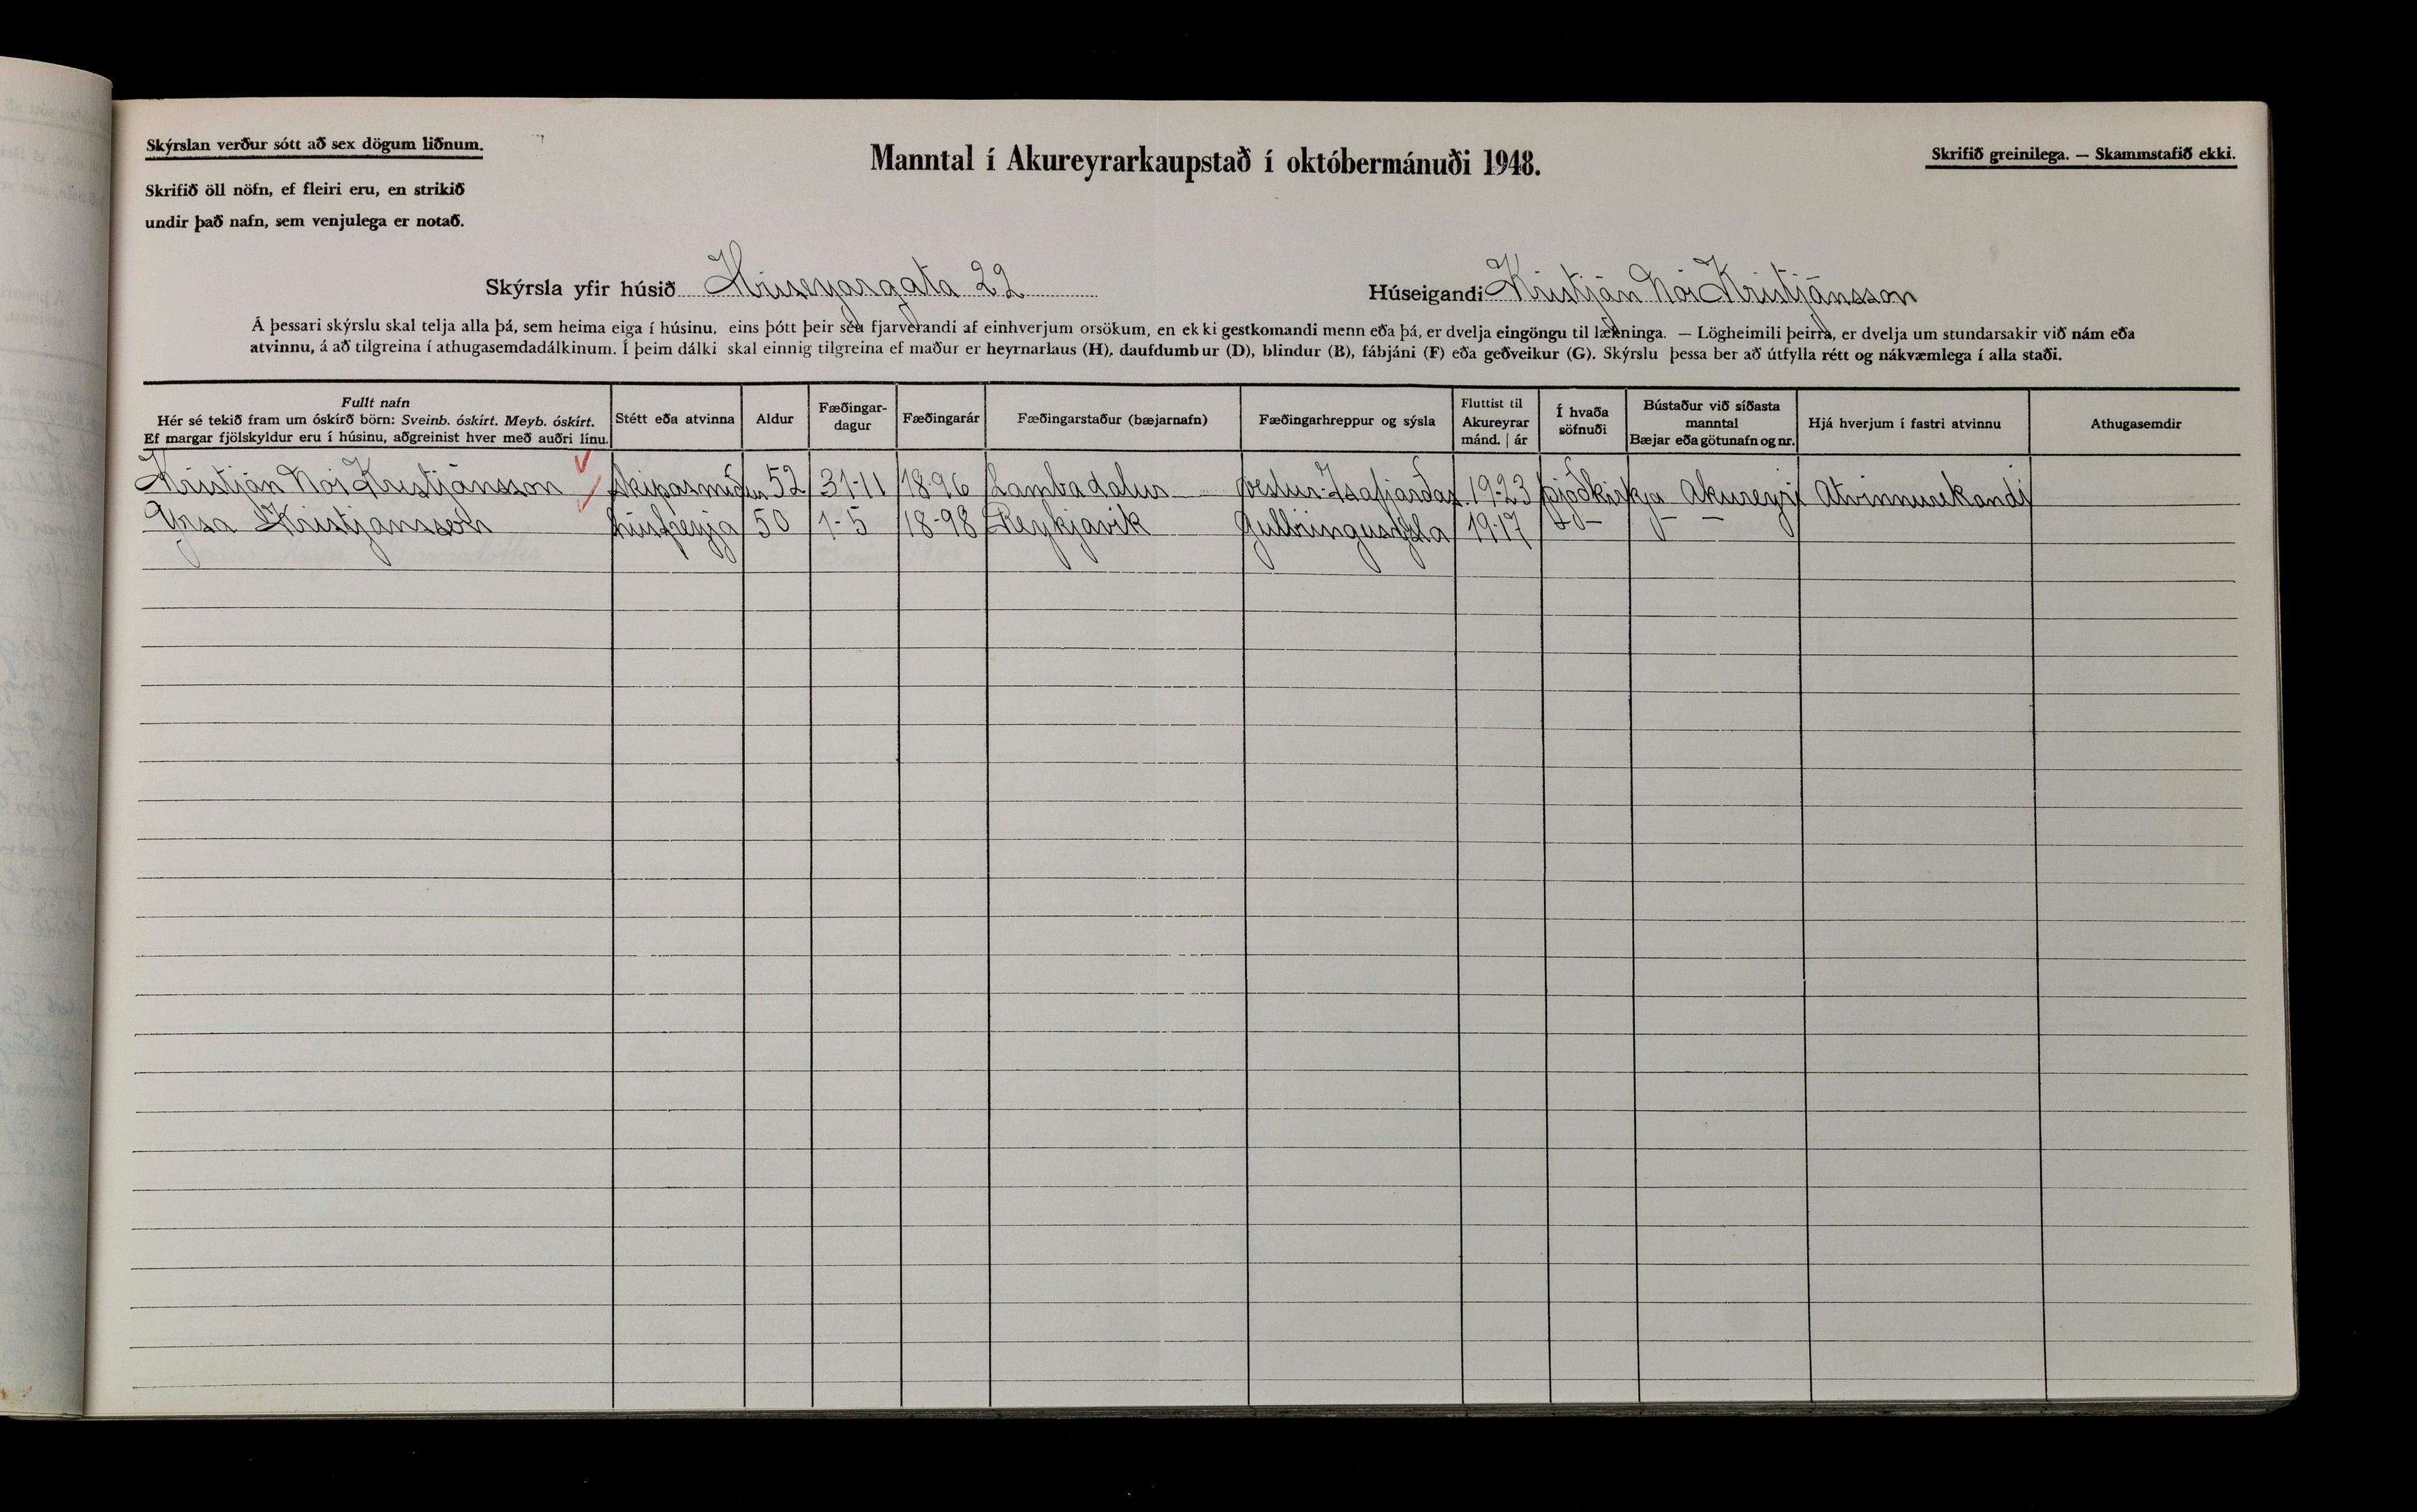 Skýrslan verður sótt að sex dögum liðnum.
Skrifið öll nöfn, ef fleiri eru, en strikið
undir það nafn, sem venjulega er notað.
Manntal í Akureyrarkaupstað í októbermánuði 1948.
Skrifið greinilega. — Skammstafið ekki.
Skýrsla yfir húsið Hríseyargata 22
Húseigandi Kristján Nói Kristjánsson
Á þessari skýrslu skal telja alla þá, sem heima eiga í húsinu, eins þótt þeir séu fjarverandi af einhverjum orsökum, en ekki gestkomandi menn eða þá, er dvelja eingöngu til lækninga. — Lögheimili þeirra, er dvelja um stundarsakir við nám eða
atvinnu, á að tilgreina í athugasemdadálkinum. Í þeim dálki skal einnig tilgreina ef maður er heyrnarlaus (H), daufdumbur (D), blindur (B), fábjáni (F) eða geðveikur (G). Skýrslu þessa ber að útfylla rétt og nákvæmlega í alla staði.
Fullt nafn
Hér sé tekið fram um óskírð börn: Sveinb. óskírt. Meyb. óskírt.
Ef margar fjölskyldur eru í húsinu, aðgreinist hver með auðri línu.
Stétt eða atvinna
Aldur
Fæðingar-
dagur
Fæðingarár
Fæðingarstaður (bæjarnafn)
Fæðingarhreppur og sýsla
Fluttist til
Akureyrar
mánd. | ár
Í hvaða
söfnuði
Bústaður við síðasta
manntal
Bæjar eða götunafn og nr.
Hjá hverjum í fastri atvinnu
Athugasemdir
Kristján Nói Kristjánsson Skipasmiður 52 31-11 18-96 Lambadalur Vestur-Isafjarðar 19-23 þjóðkirkja Akureyri Atvinnurekandi
Yrsa Kristjansson húsfreyja 50 1-5 18-98 Reykjavik Gullbringusýsla 19-17 do — — —